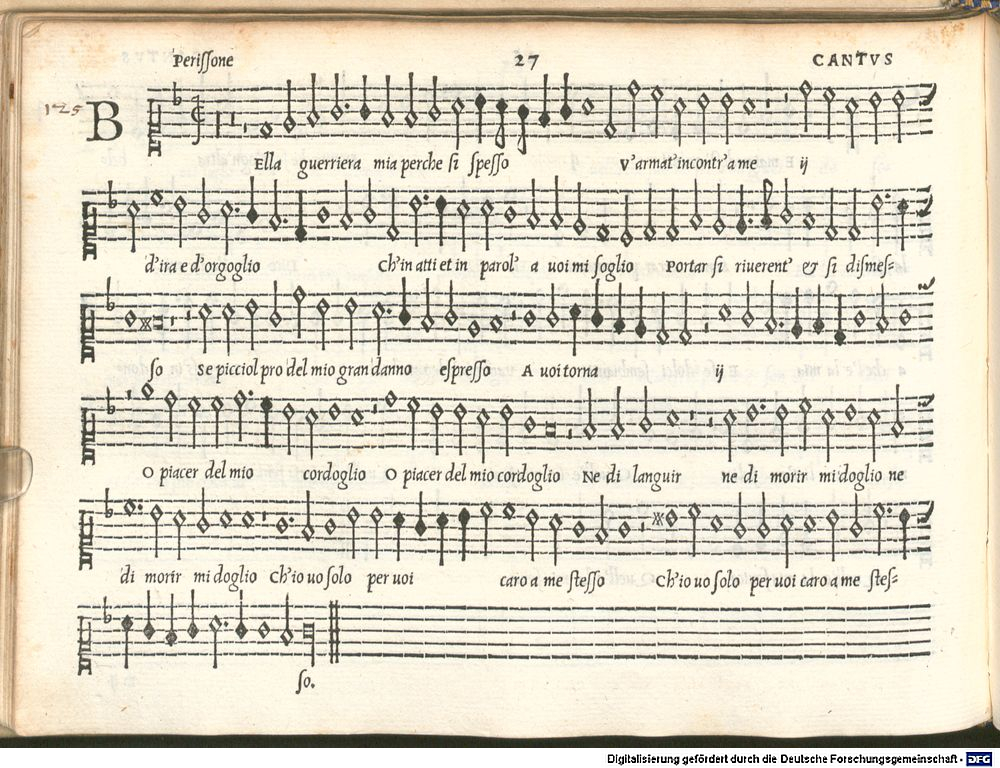 Perissone 27 CANTVS
125
B Ella guerriera mia perche si spesso V'armat'incontr'a me ij
d'ira e d'orgoglio Ch'in atti et in parol' a voi mi soglio Portar si riuerent' & si dismes-
so Se picciol pro del mio gran danno espresso A voi torna ij
O piacer del mio cordoglio O piacer del mio cordoglio Ne di languir ne di morir mi doglio ne
di morir mi doglio Ch'io uo solo per uoi caro a me stesso Ch'io uo solo per uoi caro a me stes-
so.
Digitalisierung gefördert durch die Deutsche Forschungsgemeinschaft - DFG